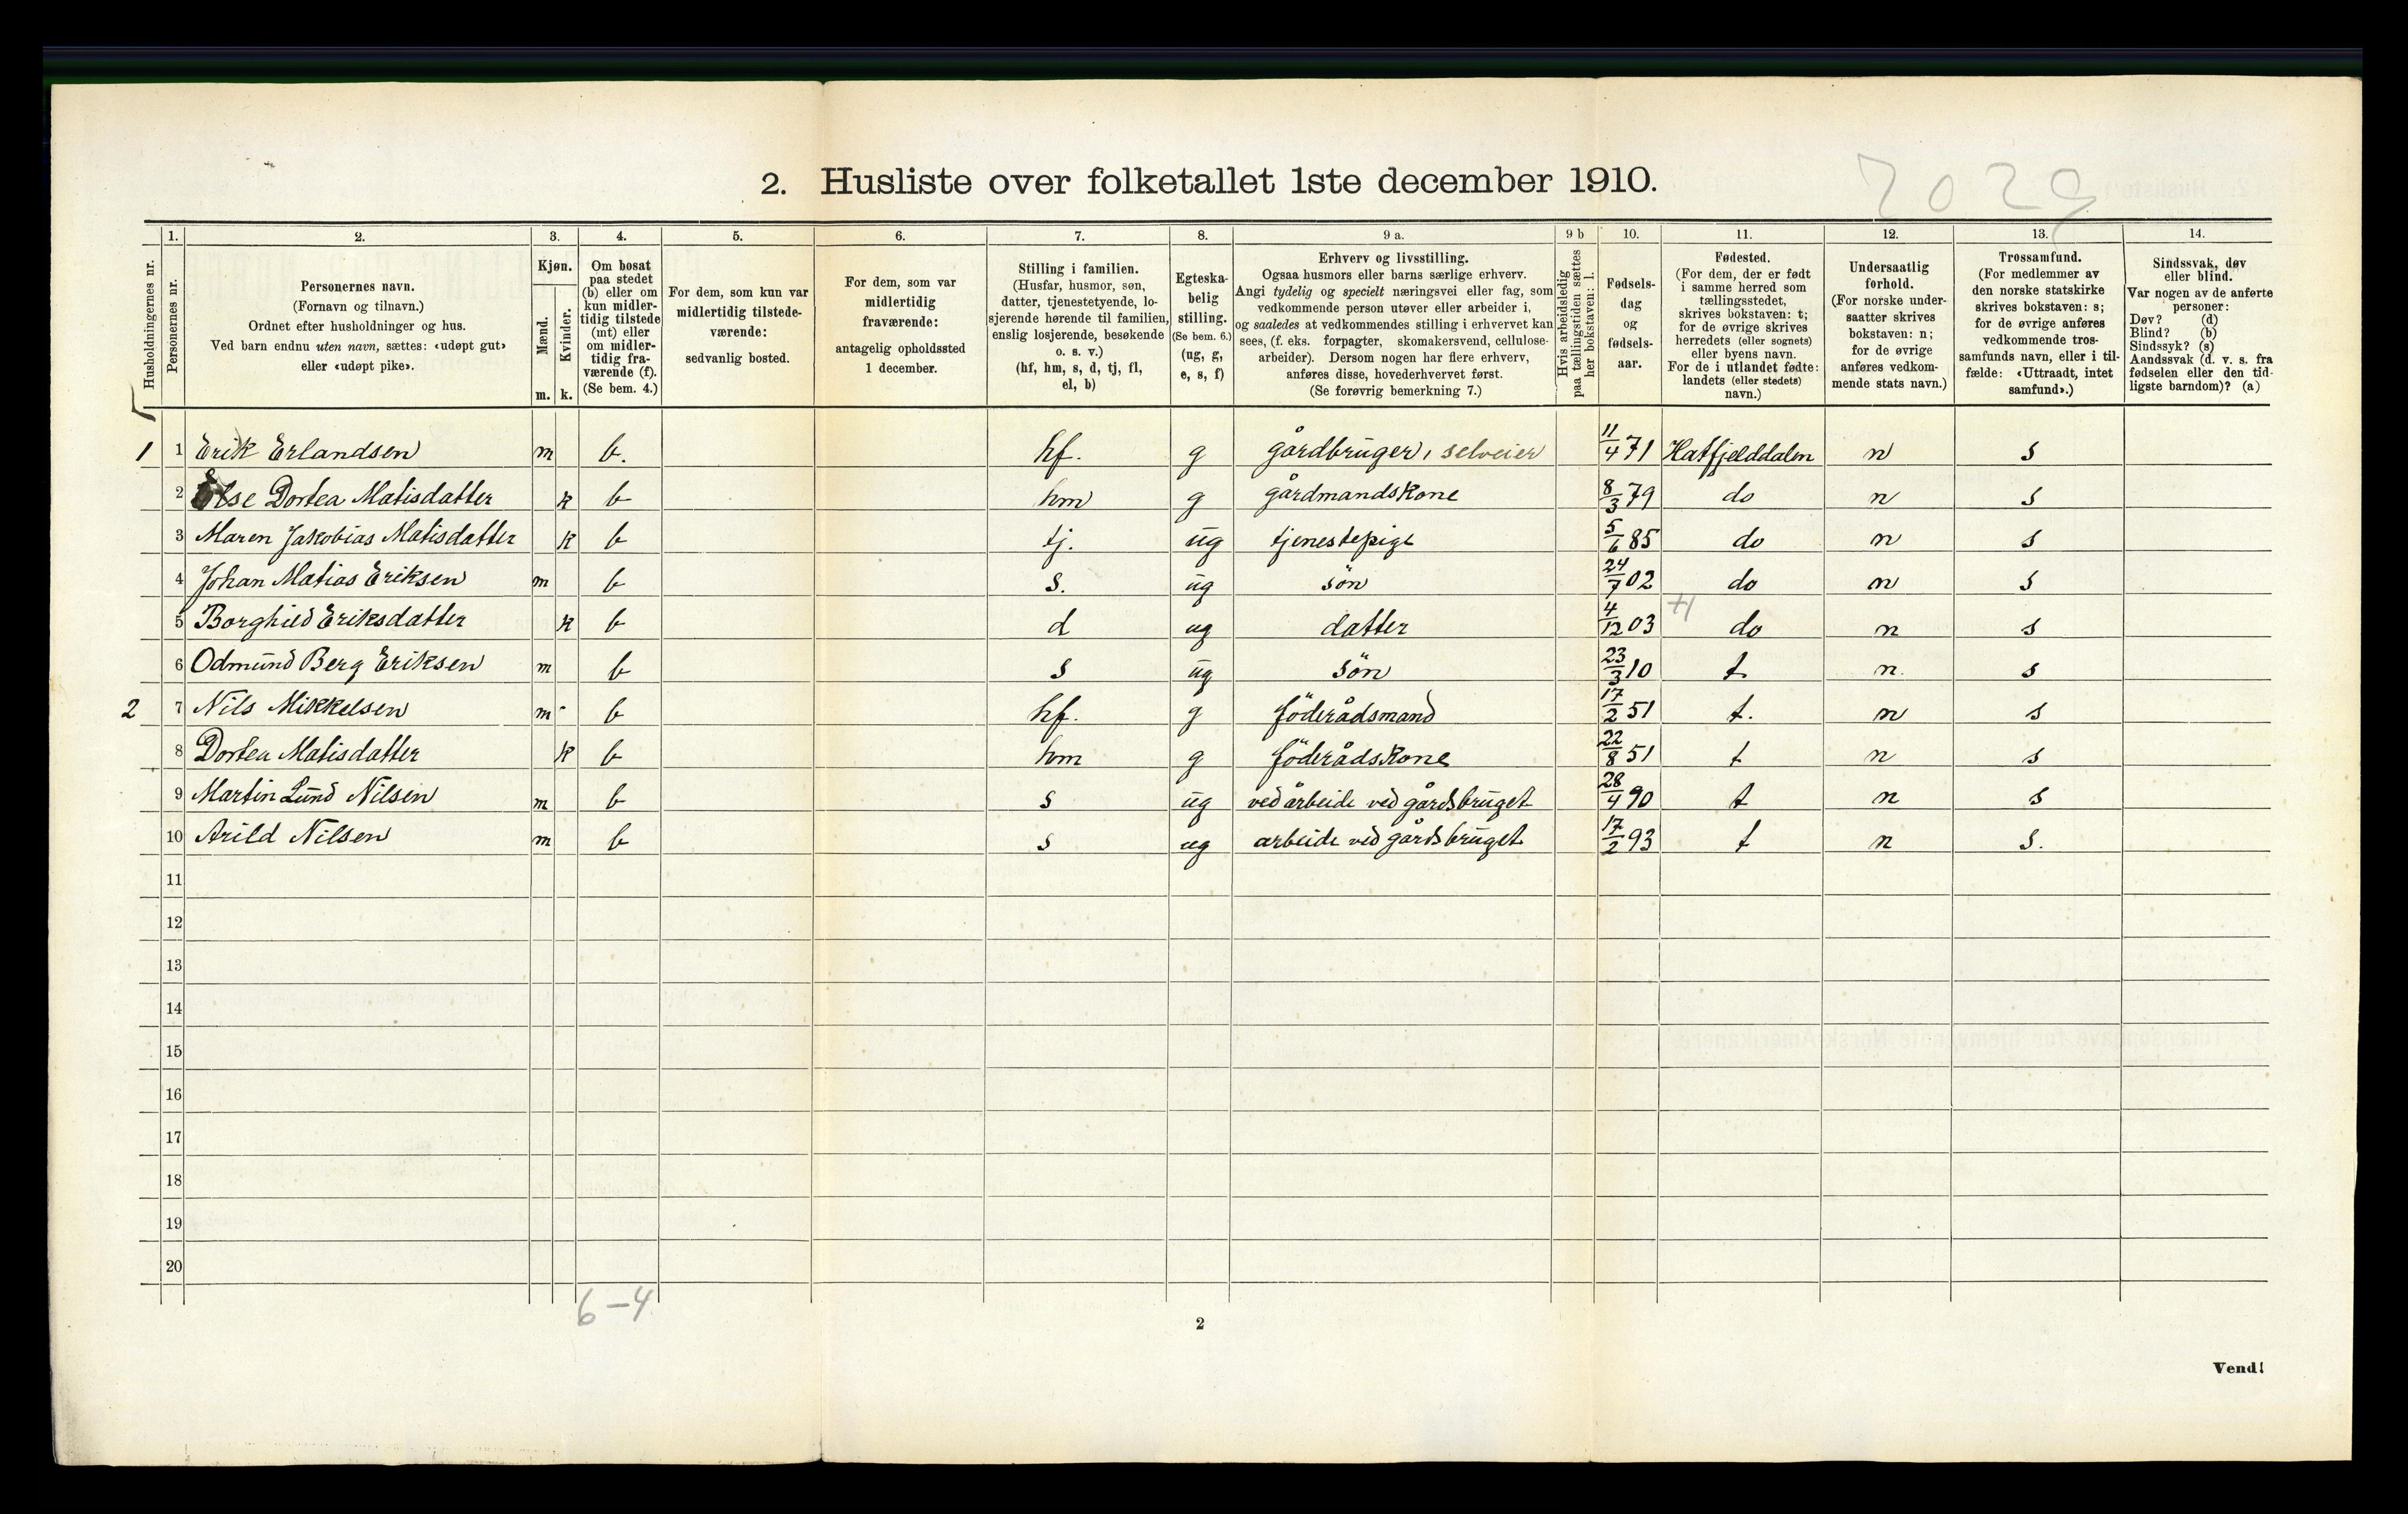 2. Husliste over folketallet 1ste december 1910.
2029
Husholdningernes nr.
1. Personernes nr.
2. Personernes navn. (Fornavn og tilnavn.) Ordnet efter husholdninger og hus. Ved barn endnu uten navn, sættes: «udøpt gut» eller «udøpt pike».
3. Kjøn. Mænd. m. Kvinder. k.
4. Om bosat paa stedet (b) eller om kun midlertidig tilstede (mt) eller om midlertidig fraværende (f). (Se bem. 4.)
5. For dem, som kun var midlertidig tilstedeværende: sedvanlig bosted.
6. For dem, som var midlertidig fraværende: antagelig opholdssted 1 december.
7. Stilling i familien. (Husfar, husmor, søn, datter, tjenestetyende, losjerende hørende til familien, enslig losjerende, besøkende o. s. v.) (hf, hm, s, d, tj, fl, el, b)
8. Egteskabelig stilling. (Se bem. 6.) (ug, g, e, s, f)
9 a. Erhverv og livsstilling. Ogsaa husmors eller barns særlige erhverv. Angi tydelig og specielt næringsvei eller fag, som vedkommende person utøver eller arbeider i, og saaledes at vedkommendes stilling i erhvervet kan sees, (f. eks. forpagter, skomakersvend, cellulosearbeider). Dersom nogen har flere erhverv, anføres disse, hovederhvervet først. (Se forøvrig bemerkning 7.)
9 b Hvis arbeidsledig paa tællingstiden sættes her bokstaven: l.
10. Fødselsdag og fødselsaar.
11. Fødested. (For dem, der er født i samme herred som tællingsstedet, skrives bokstaven: t; for de øvrige skrives herredets (eller sognets) eller byens navn. For de i utlandet fødte: landets (eller stedets) navn.)
12. Undersaatlig forhold. (For norske undersaatter skrives bokstaven: n; for de øvrige anføres vedkommende stats navn.)
13. Trossamfund. (For medlemmer av den norske statskirke skrives bokstaven: s; for de øvrige anføres vedkommende trossamfunds navn, eller i tilfælde: «Uttraadt, intet samfund».)
14. Sindssvak, døv eller blind. Var nogen av de anførte personer: Døv? (d) Blind? (b) Sindssyk? (s) Aandssvak (d. v. s. fra fødselen eller den tidligste barndom)? (a)
1 1 Erik Erlandsen m b. hf. g gårdbruger, selveier 11/4 71 Hatfjelddalen n s
2 Else Dortea Matisdatter k b hm g gårdmandskone 8/3 79 do n s
3 Maren Jakobias Matisdatter k b tj. ug tjenestepige 5/6 85 do n s
4 Johan Matias Eriksen m b s. ug sön 24/7 02 do n s
5 Borghild Eriksdatter k b d ug datter 4/12 03 do n s
6 Odmund Berg Eriksen m b s ug sön 23/3 10 t n. s
2 7 Nils Mikkelsen m b hf. g föderådsmand 17/2 51 t. n s
8 Dortea Matisdatter k b hm g föderådskone 22/8 51 t n s
9 Martin Lund Nilsen m b s ug ved arbeide ved gårdsbruget 28/4 90 t n s
10 Arild Nilsen m b s ug arbeide ved gårdsbruget 17/2 93 t n s.
11
12
13
14
15
16
17
18
19
20
6-4
2
Vend!